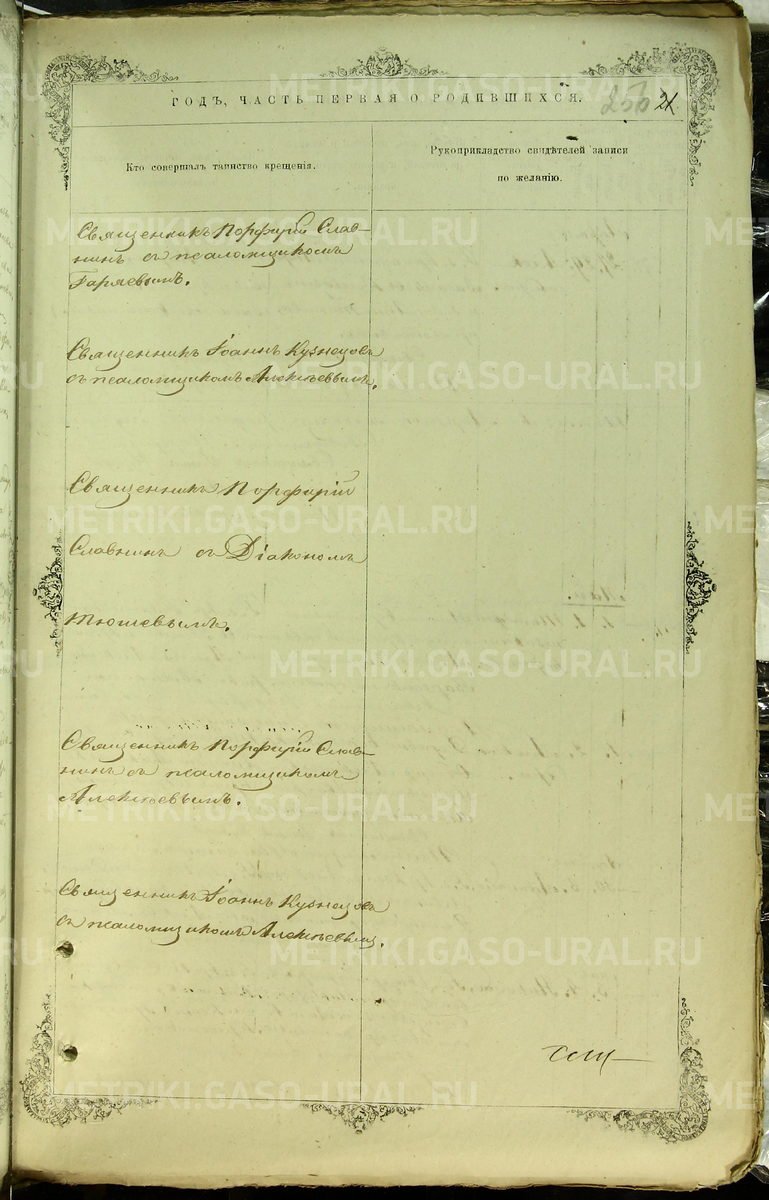 ГОДЪ, ЧАСТЬ ПЕРВАЯ О РОДИВШИХСЯ.
250 21
Кто совершалъ таинство крещенія.
Рукоприкладство свидѣтелей записи
по желанію.
Священникъ Порфирій Слав-
нинъ съ псаломщикомъ
Гаряевымъ.
Священникъ Іоаннъ Кузнецовъ
съ псаломщикомъ Алексѣевымъ.
Священникъ Порфирій
Славнинъ съ Діакономъ
Тюшевымъ.
Священникъ Порфирій Слав-
нинъ съ псаломщикомъ
Алексѣевымъ.
Священникъ Іоаннъ Кузнецовъ
съ псаломщикомъ Алексѣевымъ.
METRIKI.GASO-URAL.RU